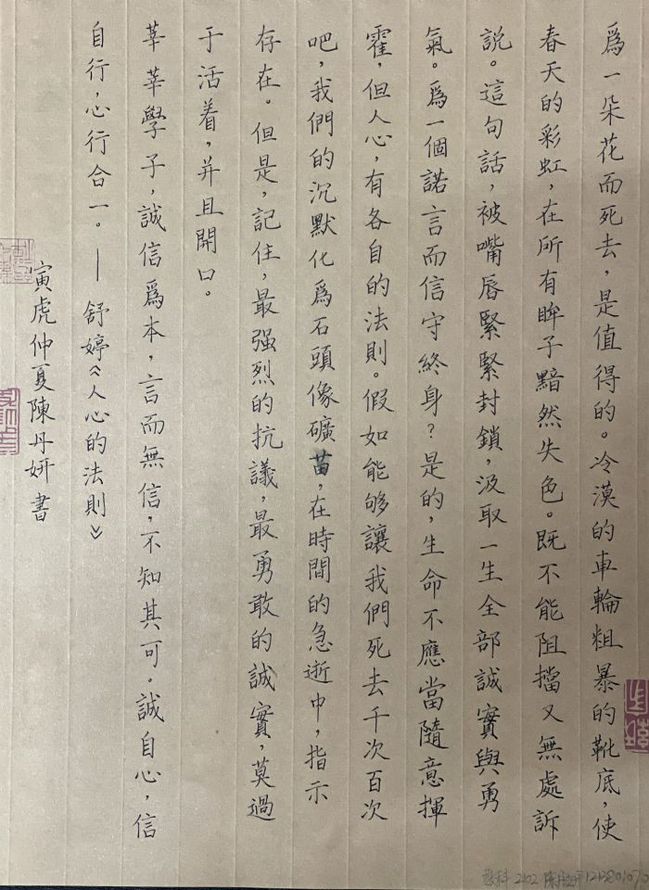 爲一朵花而死去，是值得的。冷漠的車輪粗暴的靴底，使
春天的彩虹，在所有眸子黯然失色。既不能阻擋又無處訴
説。這句話，被嘴唇緊緊封鎖，汲取一生全部誠實與勇
氣。爲一個諾言而信守終身？是的，生命不應當隨意揮
霍，但人心，有各自的法則。假如能够讓我們死去千次百次
吧，我們的沉默化爲石頭像礦苗，在時間的急逝中，指示
存在。但是，記住，最强烈的抗議，最勇敢的誠實，莫過
于活着，并且開口。
莘莘學子，誠信爲本，言而無信，不知其可。誠自心，信
自行，心行合一。——舒婷《人心的法則》
寅虎仲夏陳丹妍書